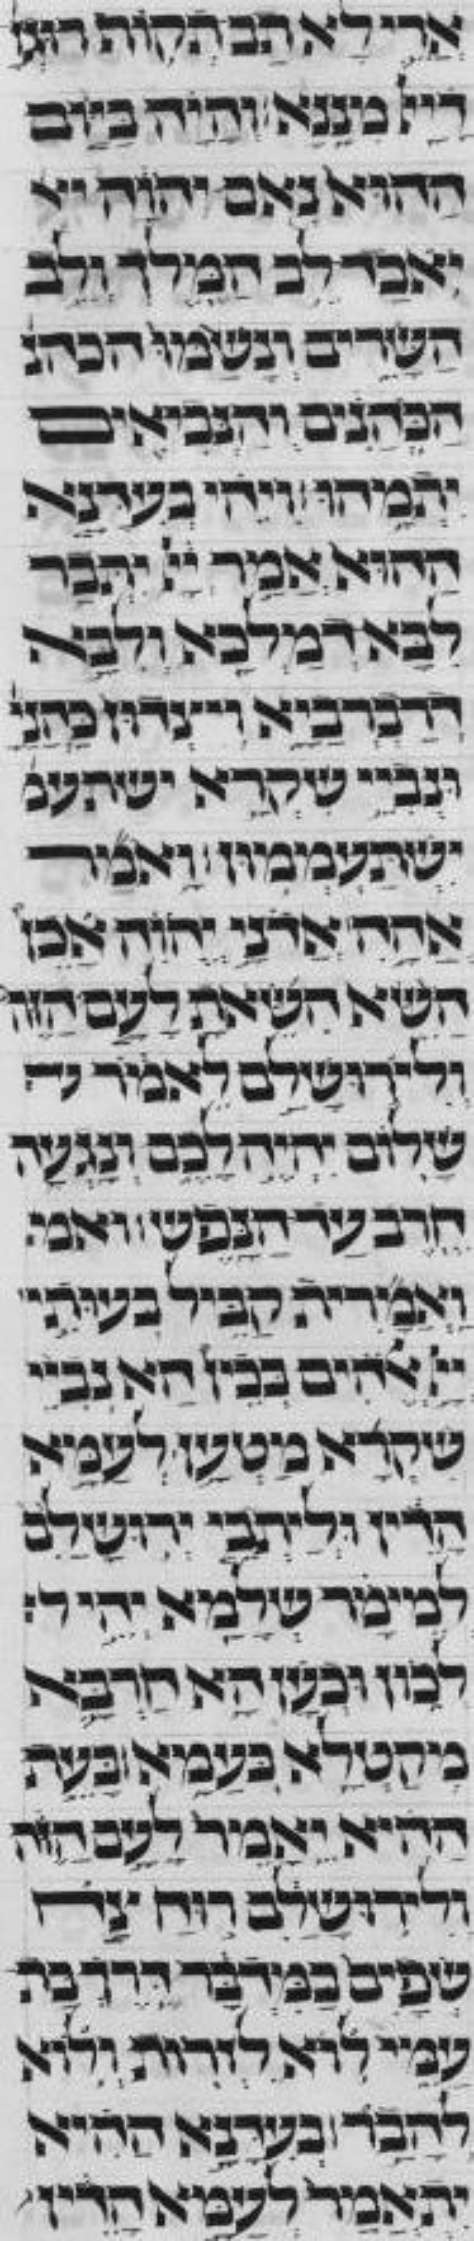 ארי לא תב תקות רוגז
דיי מננא והיה ביום
ההוא נאם יהוה יא
יאבד לב המלך ולב
השרים ונשמו הכהנ
הכהנים והנביאים
יתמהו ויהי בעדנא
ההוא אמר יי יתבר
לבא דמלכא ולבא
דרברביא ויצדון כהני
ונביי שקרא ישתעמ
ישתעממון ואמר
אהה אדני יהוה אכן
השא השאת לעם הזה
ולירושלם לאמר
שלום יהיה לכם ונגעה
חרב עד הנפש ואמ
ואמרית קביל בעותי
יי אלהים בכין הא נביי
שקרא מטען לעמא
הדין וליתבי ירושלם
למימר שלמא יהי ל
לכון וכען הא חרבא
מקטלא בעמא בעת
ההיא יאמר לעם הזה
ולירושלם רוח צח
שפים במדבר דרך בת
עמי לוא לזרות ולוא
להבר בעדנא ההיא
יתאמר לעמא הדין